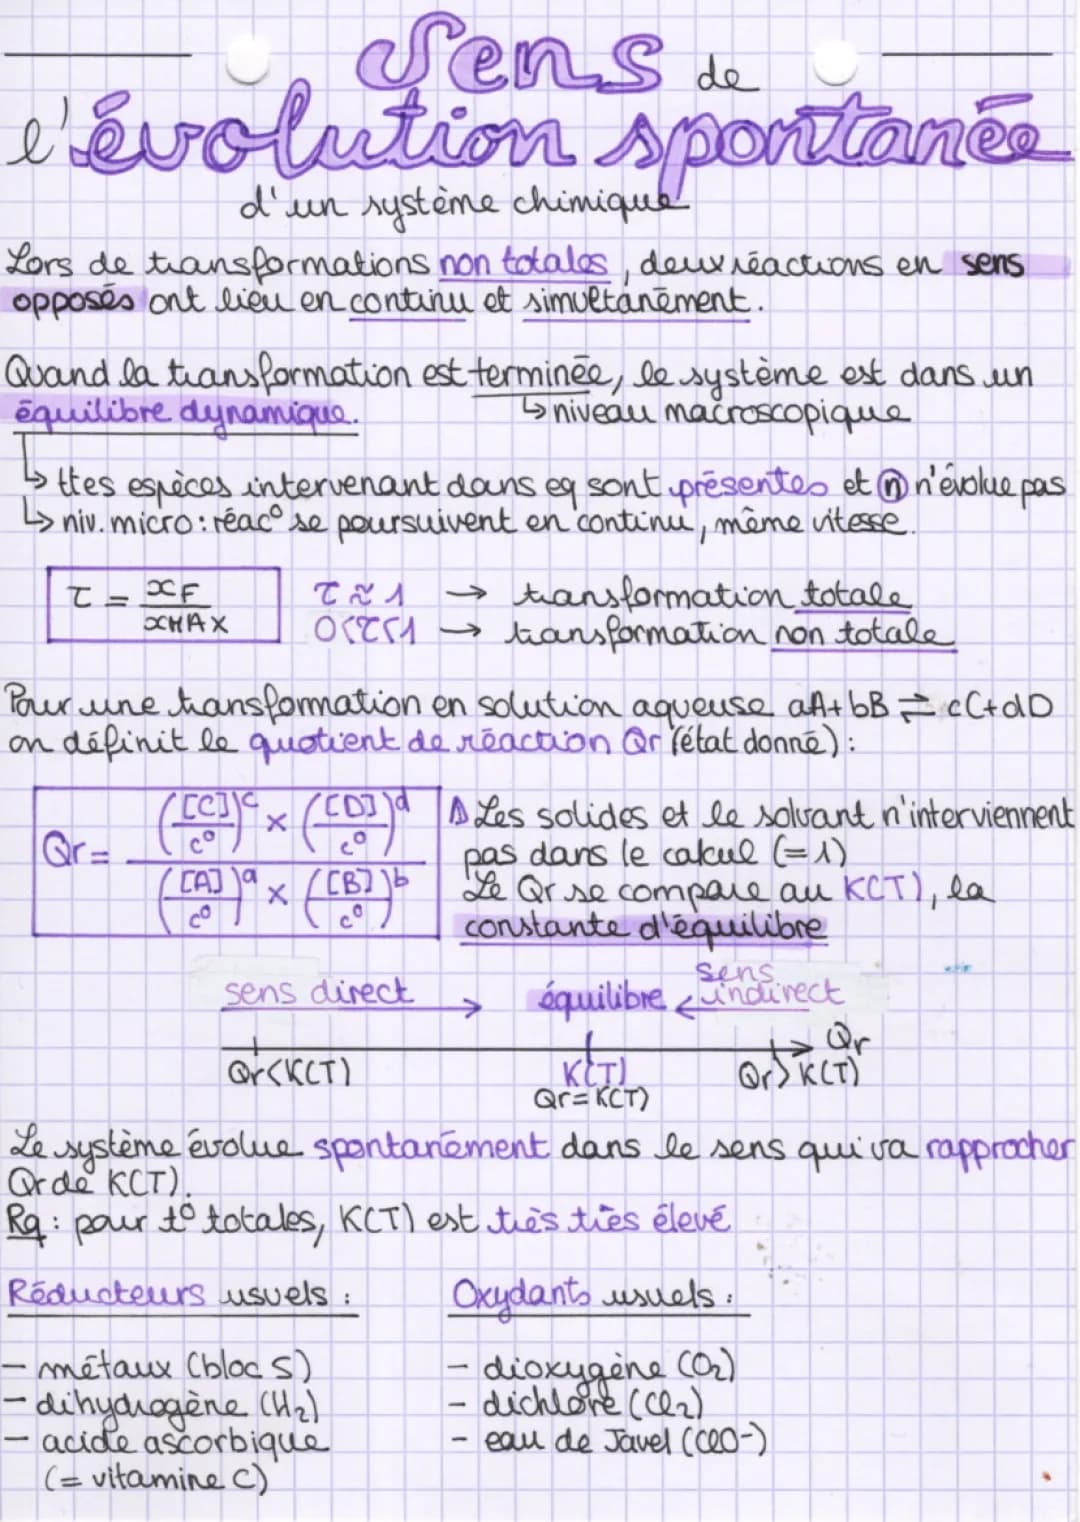 Sens de
l'évolution spontanée
d'un système chimique
Lors de transformations non totales, deux réactions en sens
opposés ont lieu en continu et simultanément.
Quand la transformation est terminée, le système est dans un
équilibre dynamique.
↳ niveau macroscopique
↳ ttes espèces intervenant dans eq sont présentes et n n'évolue pas
↳ niv. micro : réac° se poursuivent en continu, même vitesse.
τ = xF / xMAX
τ ≈ 1 → transformation totale
0<τ<1 → transformation non totale
Pour une transformation en solution aqueuse aA + bB ⇌ cC + dD
on définit le quotient de réaction Qr (état donné) :
Qr = (([C]/c°)^c × ([D]/c°)^d) / (([A]/c°)^a × ([B]/c°)^b)
⚠ Les solides et le solvant n'interviennent
pas dans le calcul (=1)
Le Qr se compare au K(T), la
constante d'équilibre
sens direct → équilibre ← sens indirect
Qr
Qr<K(T) K(T) Qr>K(T)
Qr=K(T)
Le système évolue spontanément dans le sens qui va rapprocher
Qr de K(T).
Rq : pour t° totales, K(T) est très très élevé
Réducteurs usuels :
- métaux (bloc S)
- dihydrogène (H₂)
- acide ascorbique
(= vitamine C)
Oxydants usuels :
- dioxygène (O₂)
- dichlore (Cl₂)
- eau de Javel (ClO-)